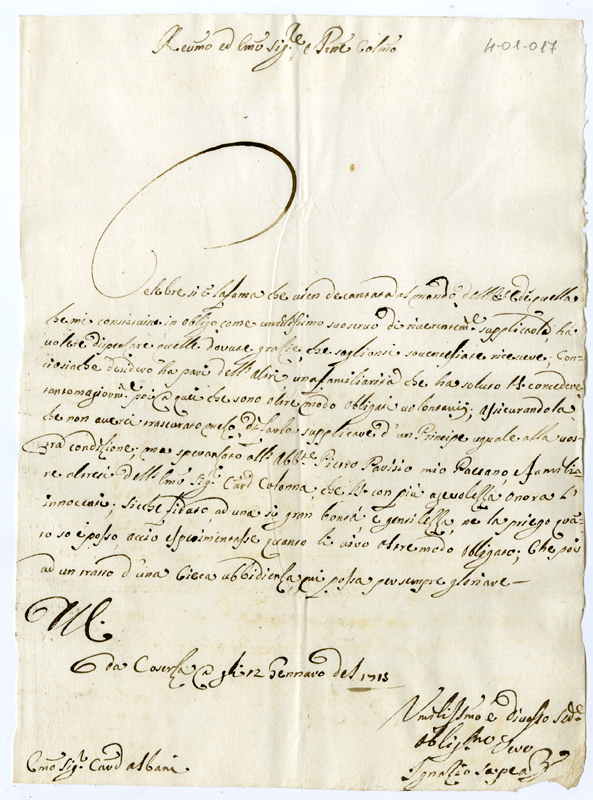 Reumo ed Emo Sig.re e Prne Colmo
4-01-017
Celebre si è la fama che vien decantata al mondo dell' E. di quella
che mi constituisce in obligo come umilissimo suo servo di riverentem.e supplicarla, ha
voler dispensare quelle dovute grazie, che sogliono ricevere, Con-
ciosiache desidero ha pari dell' altri una familiarità che ha soluto concedere
tanto magiorm.e poi a quei che sono oltre modo obligati volontarij; assicurandola
che non averia trascurato di farla supplicare d' un Principe uguale alla vos-
tra condizione; ma sperantato all' Abb.e Pietro Parisio mio Paesano, familia-
re altresì dell' Emo Sig.r Card Colonna, che con più agevolezza onora l'
innocenti; sicche fidato ad una si gran bontà e gentilezza, ne la priego quan-
to so e posso, acciò esperimentasse quanto li vivo oltre modo obligato; che poi
ad un tratto d' una Cieca ubbidienza, mi possa per sempre gloriare
Di V.E.
da Caserta a gli 12 Gennaro del 1715
Umilissmo e Divoto
Obligmo Servo
Ignazio Sapea
Emo Sig.r Card Albani